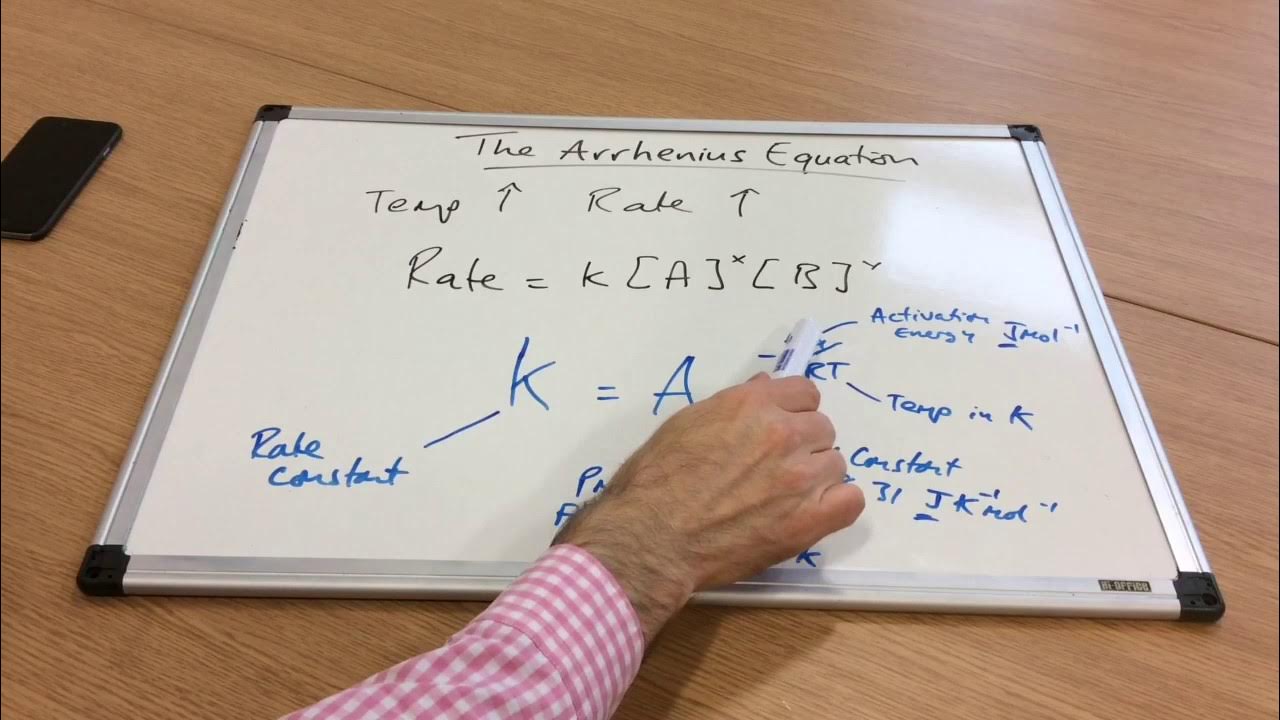 The Arrhenius Equation
Temp ↑ Rate ↑
Rate = k [A]ˣ [B]ʸ
Activation
Energy Jmol⁻¹
k = A
RT
Temp in K
Rate
constant
Constant
31 J K⁻¹mol⁻¹
K
Bi-OFFICE